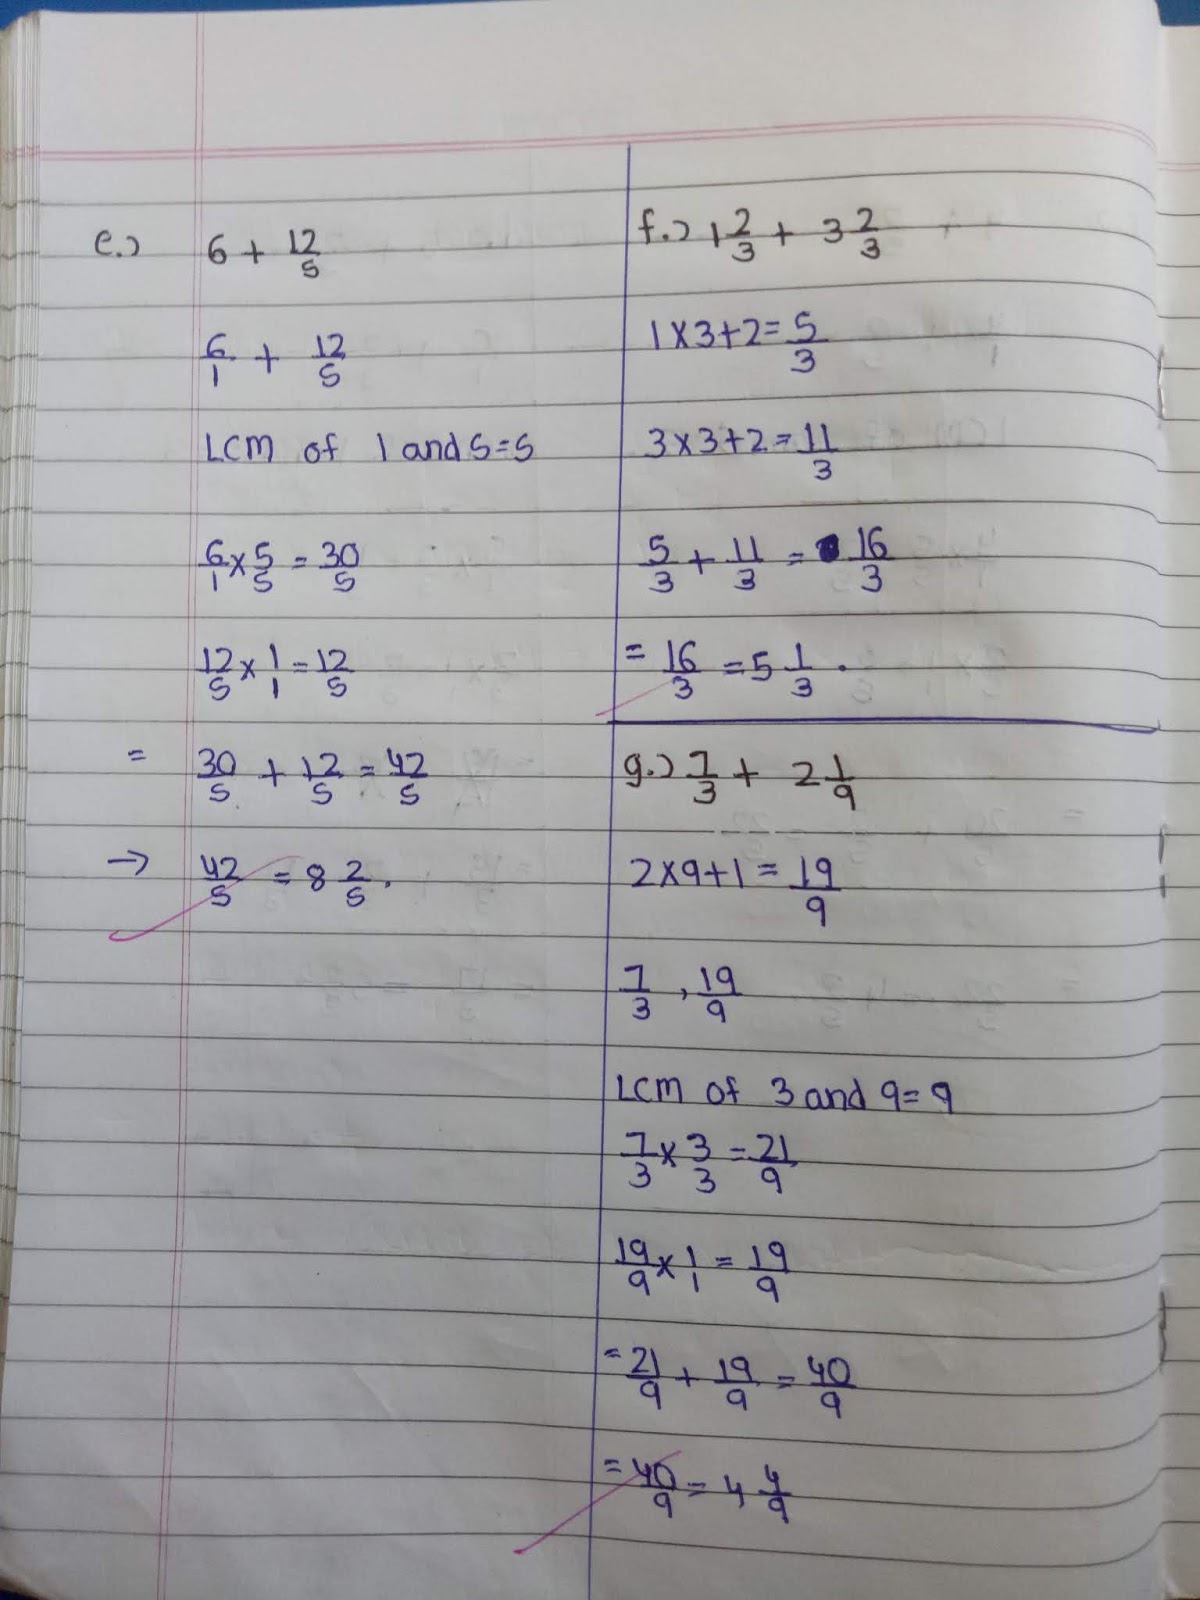 e.) 6 + 12/5
6/1 + 12/5
LCM of 1 and 5 = 5
6/1 × 5/5 = 30/5
12/5 × 1/1 = 12/5
= 30/5 + 12/5 = 42/5
→ 42/5 = 8 2/5.
f.) 1 2/3 + 3 2/3
1 × 3 + 2 = 5/3
3 × 3 + 2 = 11/3
5/3 + 11/3 = 16/3
= 16/3 = 5 1/3.
g.) 7/3 + 2 1/9
2 × 9 + 1 = 19/9
7/3 , 19/9
LCM of 3 and 9 = 9
7/3 × 3/3 = 21/9
19/9 × 1/1 = 19/9
= 21/9 + 19/9 = 40/9
= 40/9 = 4 4/9